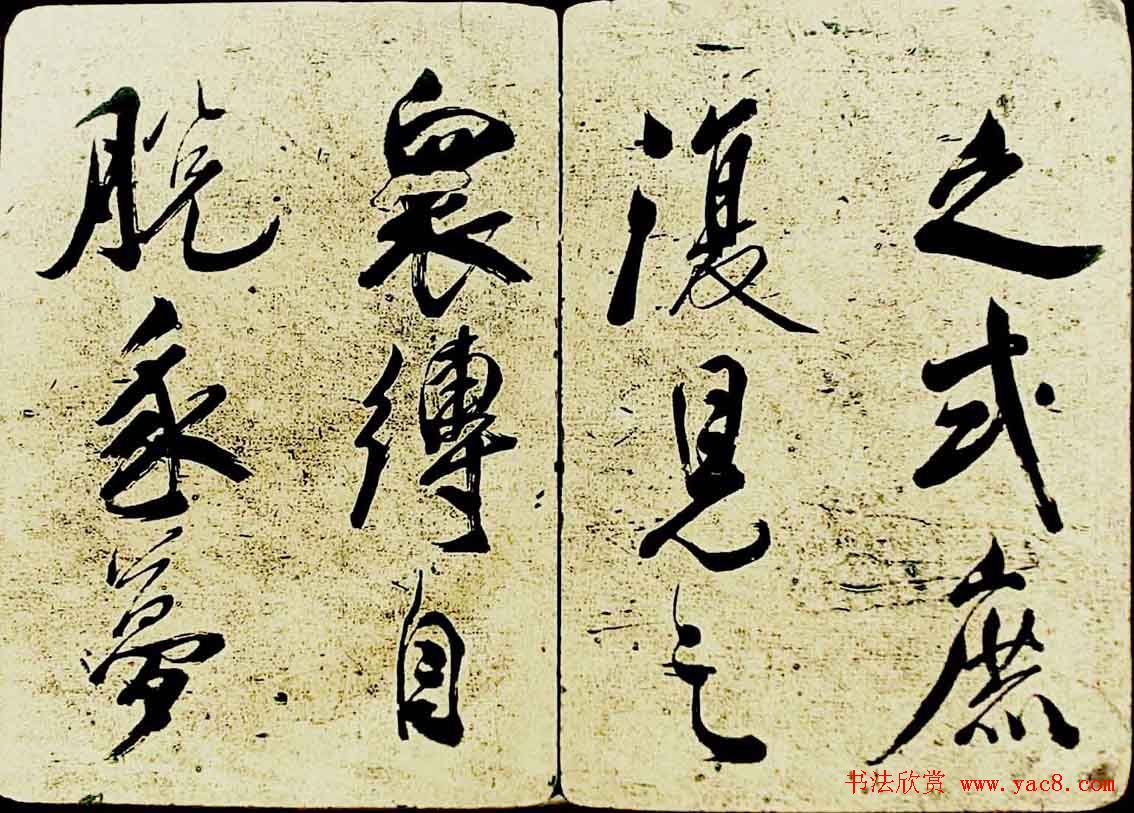 之式庶
復見之
衆縛自
脱夢
书法欣赏 www.yac8.com